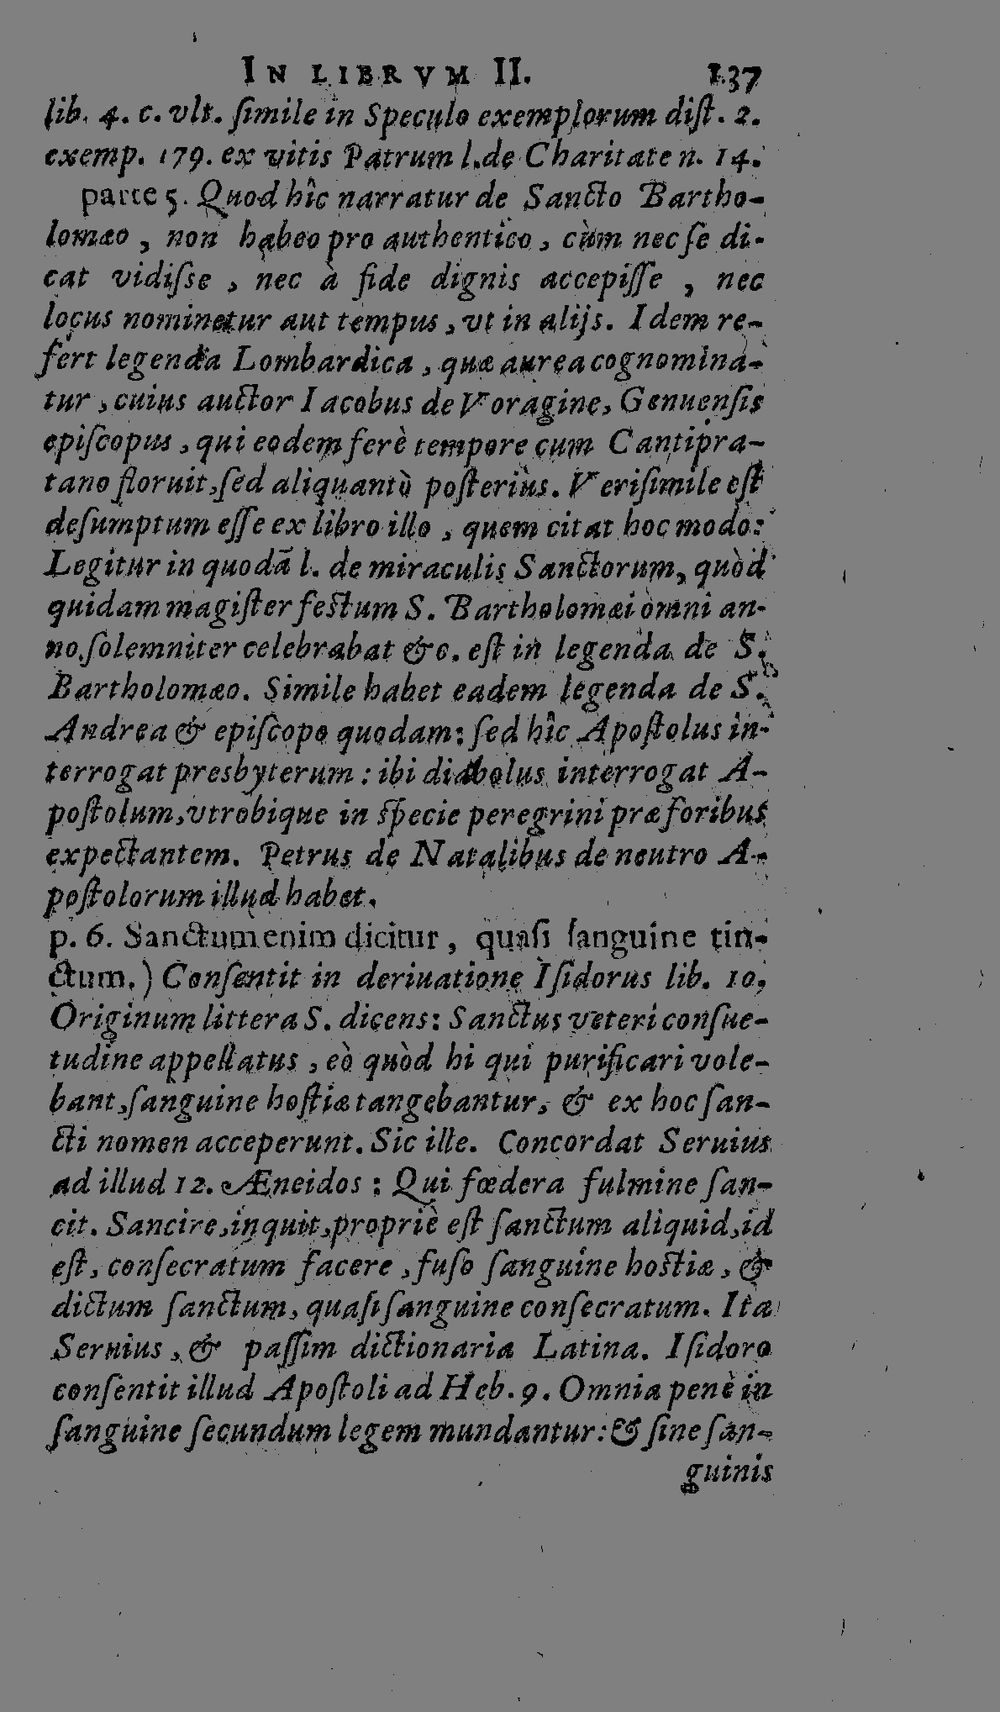 IN LIBRVM II. 137
lib. 4. c. vlt. ſimile in Speculo exemplorum diſt. 2.
exemp. 179. ex vitis Patrum l. de Charitate n. 14.
parte 5. Quod hîc narratur de Sancto Bartho-
lomæo, non habeo pro authentico, cùm nec ſe di-
cat vidiſse, nec à fide dignis accepiſſe, nec
locus nominetur aut tempus, vt in alijs. Idem re-
fert legenda Lombardica, quæ aurea cognomina-
tur, cuius auctor Iacobus de Voragine, Genuenſis
epiſcopus, qui eodem ferè tempore cum Cantipra-
tano floruit, ſed aliquantò poſteriùs. Veriſimile eſt
deſumptum eſſe ex libro illo, quem citat hoc modo:
Legitur in quodā l. de miraculis Sanctorum, quòd
quidam magiſter feſtum S. Bartholomæi omni an-
no ſolemniter celebrabat &c. eſt in legenda de S.
Bartholomæo. Simile habet eadem legenda de S.
Andrea & epiſcopo quodam: ſed hîc Apoſtolus in-
terrogat presbyterum: ibi diabolus interrogat A-
poſtolum, vtrobique in ſpecie peregrini præ foribus
expectantem. Petrus de Natalibus de neutro A-
poſtolorum illud habet.
p. 6. Sanctum enim dicitur, quaſi ſanguine tin-
ctum.) Conſentit in deriuatione Iſidorus lib. 10.
Originum littera S. dicens: Sanctus veteri conſue-
tudine appellatus, eò quòd hi qui purificari vole-
bant, ſanguine hoſtiæ tangebantur, & ex hoc ſan-
cti nomen acceperunt. Sic ille. Concordat Seruius
ad illud 12. Æneidos: Qui fœdera fulmine ſan-
cit. Sancire, inquit, propriè eſt ſanctum aliquid, id
eſt, conſecratum facere, fuſo ſanguine hoſtiæ, &
dictum ſanctum, quaſi ſanguine conſecratum. Ita
Seruius, & paſſim dictionaria Latina. Iſidoro
conſentit illud Apoſtoli ad Heb. 9. Omnia penè in
ſanguine ſecundum legem mundantur: & ſine ſan-
guinis